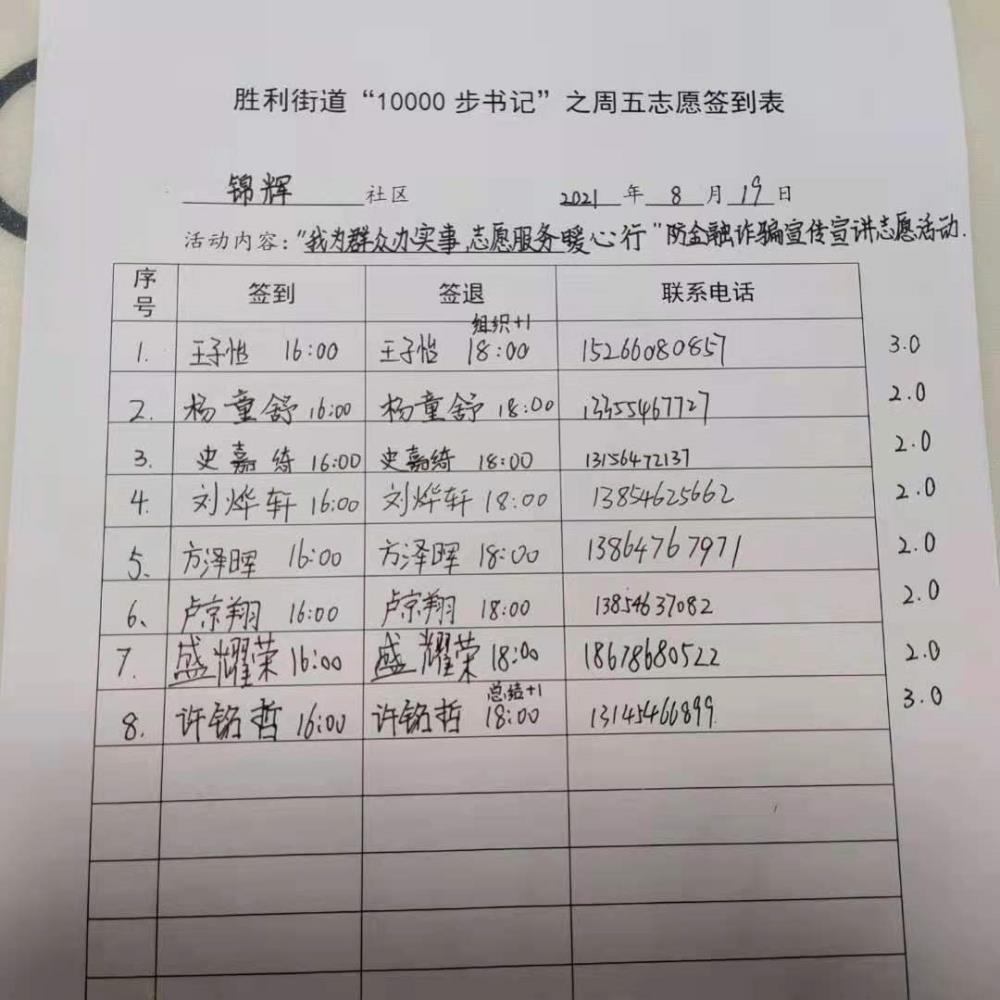 胜利街道“10000 步书记”之周五志愿签到表
锦辉 社区 2021 年 8 月 19 日
活动内容：“我为群众办实事,志愿服务暖心行”防金融诈骗宣传宣讲志愿活动.
序号 签到 签退 联系电话
组织+1
1. 王子恺 16:00 王子恺 18:00 15266080857 3.0
2. 杨童舒 16:00 杨童舒 18:00 13355467727 2.0
3. 史嘉绮 16:00 史嘉绮 18:00 13156472137 2.0
4. 刘烨轩 16:00 刘烨轩 18:00 13854625662 2.0
5、 方泽晖 16:00 方泽晖 18:00 13864767971 2.0
6、 卢京翔 16:00 卢京翔 18:00 13854637082 2.0
7. 盛耀荣 16:00 盛耀荣 18:00 18678680522 2.0
总结+1
8. 许铭哲 16:00 许铭哲 18:00 13145466899 3.0